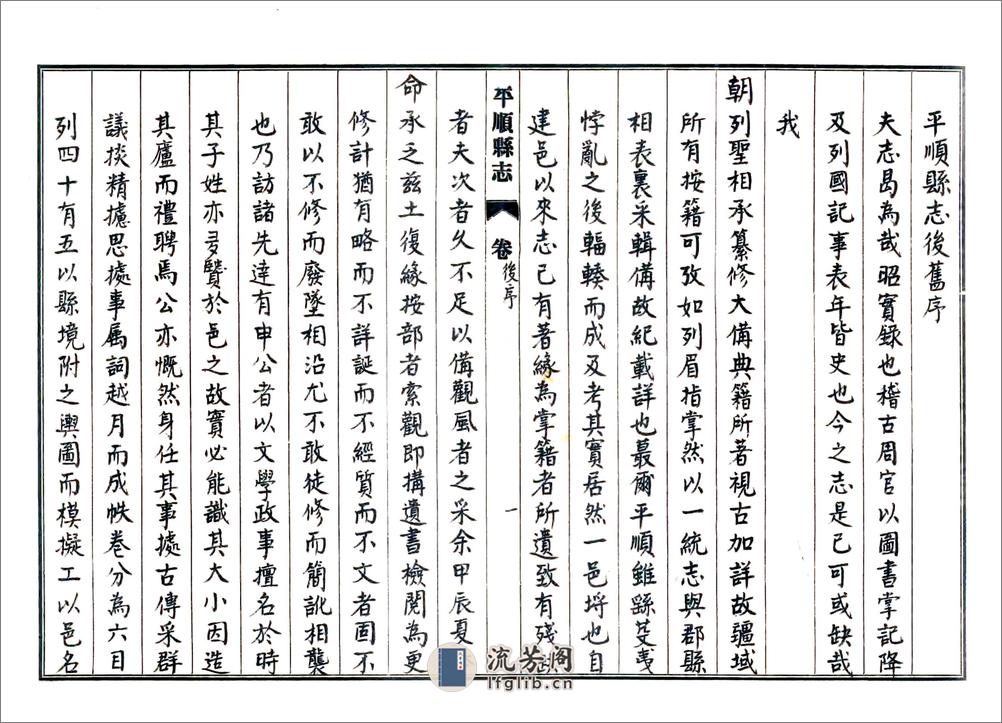 平順縣志後舊序
夫志曷為哉昭實録也稽古周官以圖書掌記降
及列國記事表年皆史也今之志是已可或缺哉
我
朝列聖相承纂修大備典籍所著視古加詳故疆域
所有按籍可攷如列眉指掌然以一統志與郡縣
相表裏采輯備故紀載詳也蕞爾平順雖繇芟夷
悖亂之後輻輳而成及考其實居然一邑埒也自
建邑以來志已有著緣為掌籍者所遺致有殘
平順縣志 卷 後序 一
者夫次者久不足以備觀風者之采余甲辰夏
命承乏兹土復緣按部者索觀即搆遺書檢閱為更
修計猶有略而不詳誕而不經質而不文者固不
敢以不修而廢墜相沿尤不敢徒修而簡訛相襲
也乃訪諸先達有申公者以文學政事擅名於時
其子姓亦多贒於邑之故實必能識其大小因造
其廬而禮聘焉公亦慨然身任其事據古傳采群
議掞精攄思據事属詞越月而成帙卷分為六目
列四十有五以縣境附之輿圖而模擬工以邑名
流芳阁
lfglib.cn